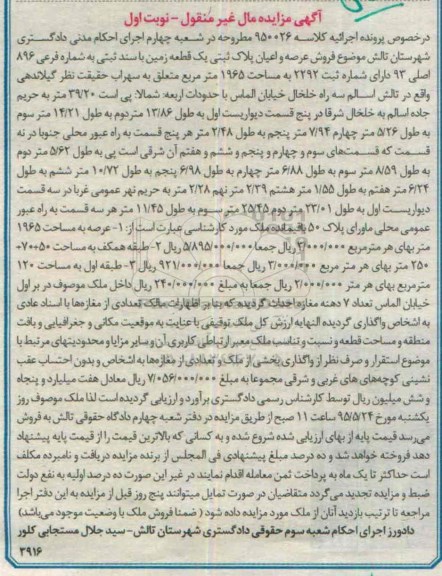 آگهی مزایده مال غیر منقول - نوبت اول
درخصوص پرونده اجرائیه کلاسه ۹۵۰۰۲۶ مطروحه در شعبه چهارم اجرای احکام مدنی دادگستری
شهرستان تالش موضوع فروش عرصه و اعیان پلاک ثبتی یک قطعه زمین با سند ثبتی به شماره فرعی ۸۹۶
اصلی ۹۳ دارای شماره ثبت ۲۲۹۲ به مساحت ۱۹۶۵ متر مربع متعلق به سهراب حقیقت نظر گیلاندهی
واقع در تالش اسالم سه راه خلخال خیابان الماس با حدودات اربعه: شمالا: پی است ۳۹/۲۰ متر به حریم
جاده اسالم به خلخال شرقا در پنج قسمت دیواریست اول به طول ۱۳/۸۶ متر دوم به طول ۱۴/۲۱ متر سوم
به طول ۵/۲۶ متر چهارم ۷/۹۴ متر پنجم به طول ۲/۴۸ متر هر پنج قسمت به راه عبور محلی جنوبا در نه
قسمت که قسمت‌های سوم و چهارم و پنجم و ششم و هفتم آن شرقی است پی به طول ۵/۶۲ متر دوم
به طول ۸/۵۹ متر سوم به طول ۶/۸۸ متر چهارم به طول ۶/۹۸ پنجم به طول ۱۰/۷۲ متر ششم به طول
۶/۲۴ متر هفتم به طول ۱/۵۵ متر هشتم ۲/۳۹ متر نهم ۲/۲۸ متر به حریم نهر عمومی غربا در سه قسمت
دیواریست اول به طول ۲۳/۰۱ متر دوم ۲۵/۴۵ متر سوم به طول ۱۱/۴۵ متر هر سه قسمت به راه عبور
عمومی محلی ماورای پلاک ۵۰ باقیمانده ملک مورد کارشناسی عبارت است از: ۱- عرصه به مساحت ۱۹۶۵
متر بهای هر مترمربع ۳/۰۰۰/۰۰۰ ریال جمعا ۵/۸۹۵/۰۰۰/۰۰۰ ریال ۲- طبقه همکف به مساحت ۵۰+۷۰+
۲۵۰ متر بهای هر متر مربع ۳/۰۰۰/۰۰۰ ریال جمعا ۹۲۱/۰۰۰/۰۰۰ ریال ۳- طبقه اول به مساحت ۱۲۰
مترمربع بهای هر متر ۲/۰۰۰/۰۰۰ ریال جمعا به مبلغ ۲۴۰/۰۰۰/۰۰۰ ریال داخل ملک موصوف در بر اول
خیابان الماس تعداد ۷ دهنه مغازه احداث گردیده که بنا بر اظهارات مالک تعدادی از مغازه‌ها با اسناد عادی
به اشخاص واگذاری گردیده النهایه ارزش کل ملک توقیفی با عنایت به موقعیت مکانی و جغرافیایی و بافت
منطقه و مساحت قطعه و نسبت و تناسب ملک معبر ارتباطی کاربری آن و سایر مزایا و محدودیتهای مرتبط با
موضوع استقرار و صرف نظر از واگذاری بخشی از ملک و تعدادی از مغازه‌ها به اشخاص و بدون احتساب عقب
نشینی کوچه‌های های غربی و شرقی مجموعا به مبلغ ۷/۰۵۶/۰۰۰/۰۰۰ ریال معادل هفت میلیارد و پنجاه
و شش میلیون ریال توسط کارشناس رسمی دادگستری برآورد و ارزیابی گردیده است لذا ملک موصوف روز
یکشنبه مورخ ۹۵/۵/۲۴ ساعت ۱۱ صبح از طریق مزایده در دفتر شعبه چهارم دادگاه حقوقی تالش به فروش
می‌رسد قیمت پایه از بهای ارزیابی شده شروع شده و به کسانی که بالاترین قیمت را از قیمت پایه پیشنهاد
دهد فروخته خواهد شد و ده درصد مبلغ پیشنهادی فی المجلس از برنده مزایده دریافت و نامبرده مکلف
است حداکثر تا یک ماه به پرداخت ثمن معامله اقدام نمایند در غیر این صورت ده درصد اولیه به نفع دولت
ضبط و مزایده تجدید می‌گردد متقاضیان در صورت تمایل میتوانند پنج روز قبل از مزایده به این دفتر اجرا
مراجعه تا ترتیب بازدید آنان از ملک مورد مزایده داده شود ( ضمنا فروش ملک با وضعیت موجود می‌باشد)
دادورز اجرای احکام شعبه سوم حقوقی دادگستری شهرستان تالش - سید جلال مستجابی کلور
۳۹۱۶